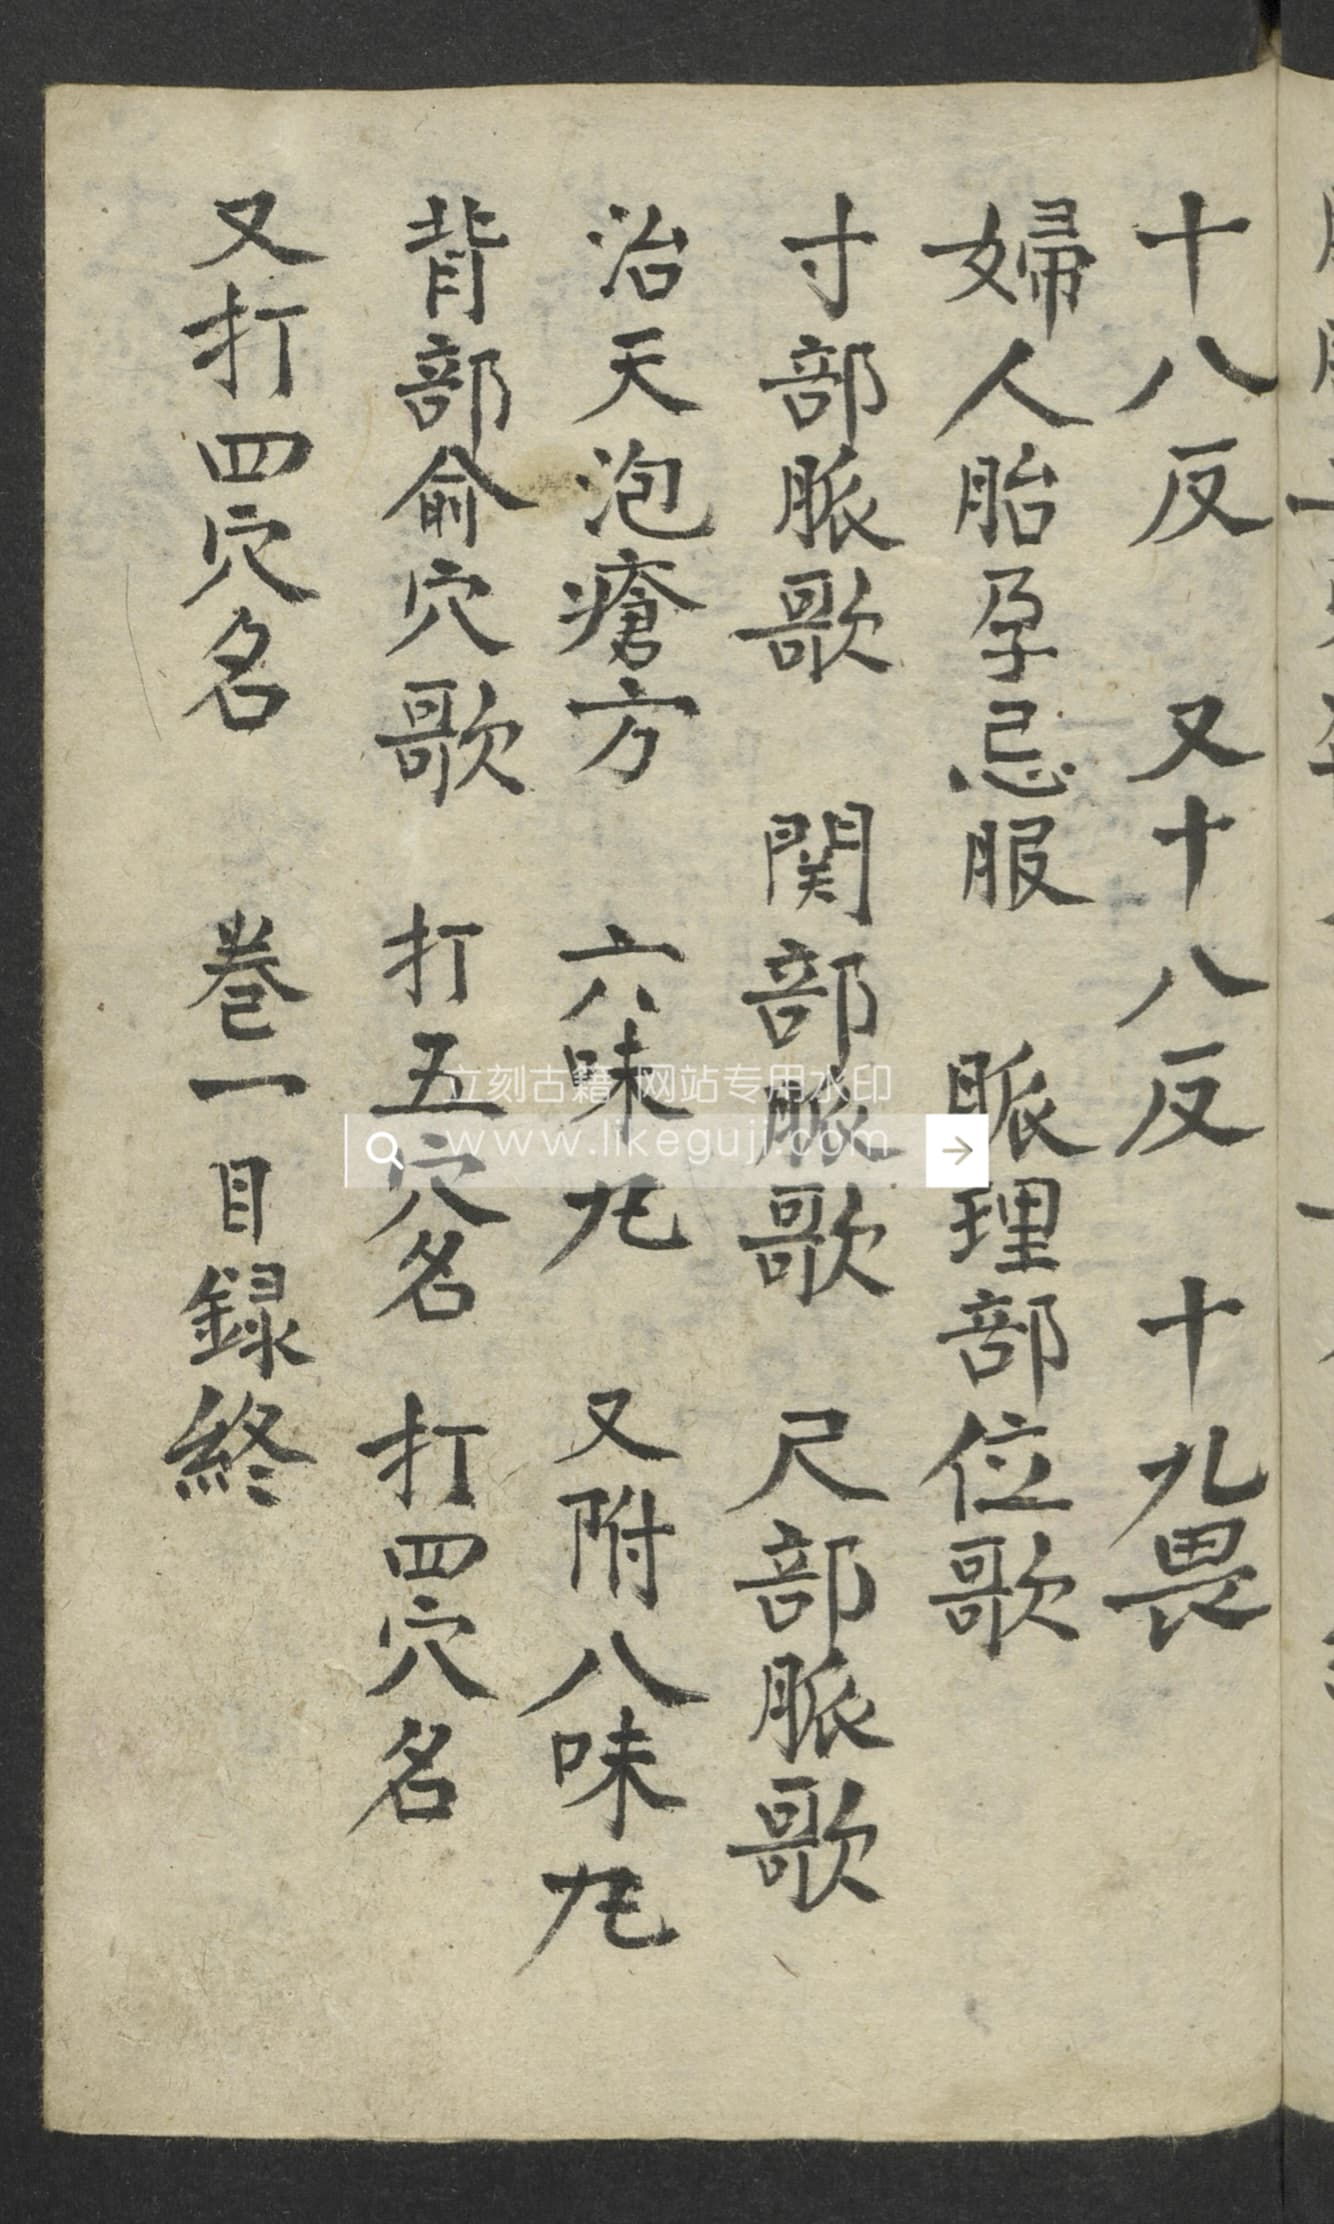 十八反　又十八反　十九畏
婦人胎孕忌服　脈理部位歌
寸部脈歌　関部脈歌　尺部脈歌
治天泡瘡方　六味丸　又附八味丸
背部俞穴歌　打五穴名　打四穴名
又打四穴名　卷一目録終
立刻古籍 网站专用水印
www.likeguji.com